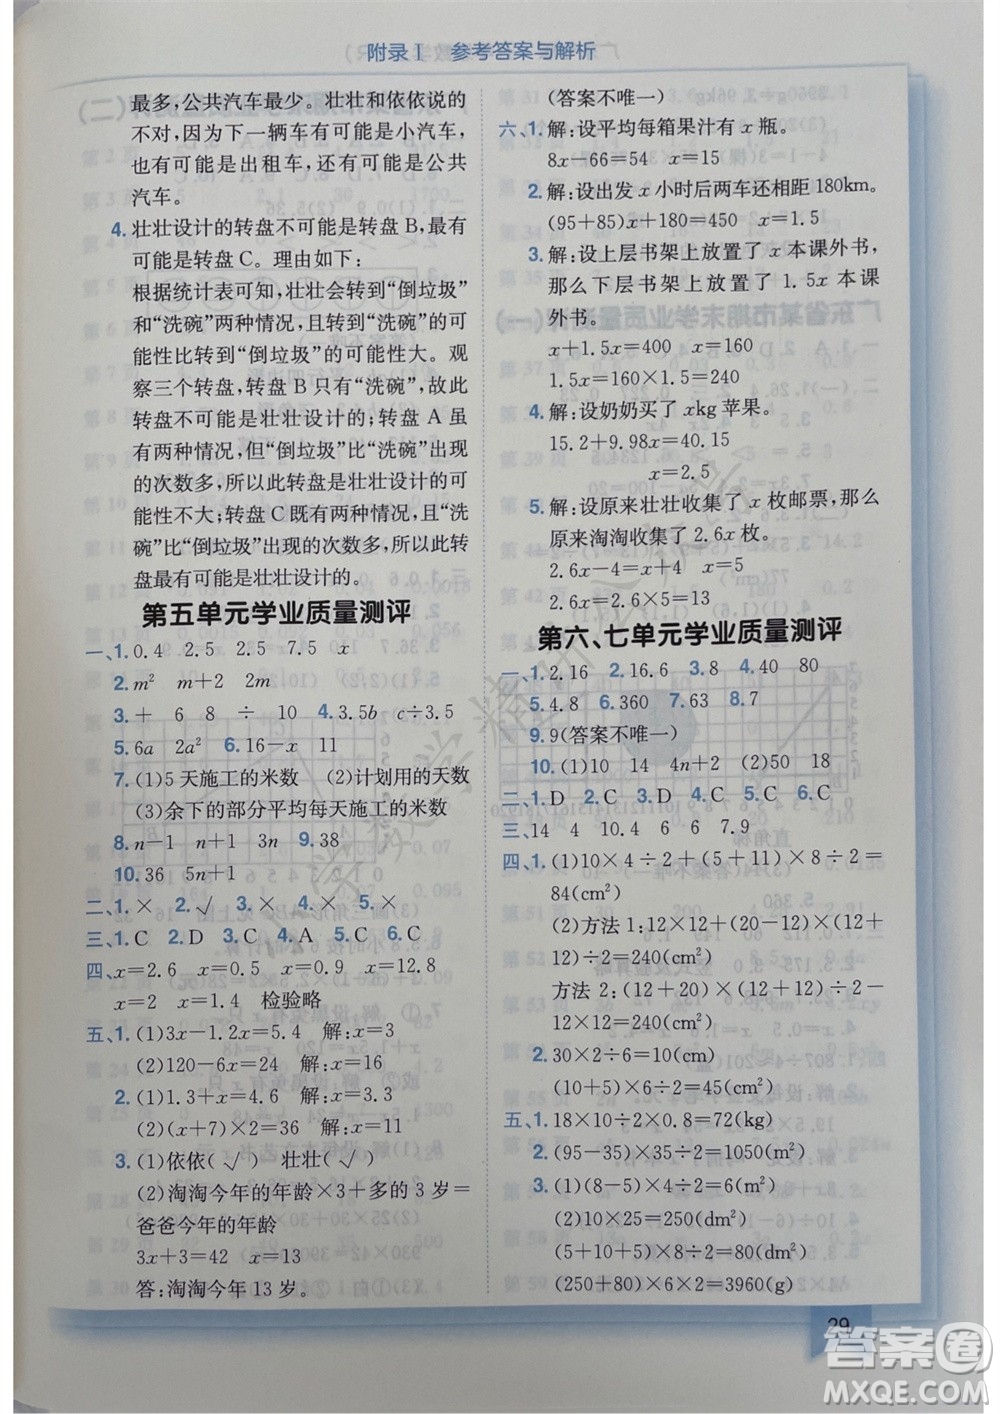 附录Ⅰ 参考答案与解析
最多,公共汽车最少。壮壮和依依说的
不对,因为下一辆车有可能是小汽车,
也有可能是出租车,还有可能是公共
汽车。
4. 壮壮设计的转盘不可能是转盘 B,最有
可能是转盘 C。理由如下:
根据统计表可知,壮壮转到“倒垃圾”
和“洗碗”两种情况,且转到“洗碗”的可
能性比转到“倒垃圾”的可能性大。观
察三个转盘,转盘 B 只有“洗碗”,故此
转盘不可能是壮壮设计的;转盘 A 虽
有两种情况,但“倒垃圾”比“洗碗”出现
的次数多,所以此转盘是壮壮设计的可
能性不大;转盘 C 既有两种情况,且“洗
碗”比“倒垃圾”出现的次数多,所以此转
盘最有可能是壮壮设计的。
第五单元学业质量测评
一、1. 0.4 2.5 2.5 7.5 x
2. m² m+2 2m
3. + 6 8 ÷ 10 4. 3.5b c÷3.5
5. 6a 2a² 6. 16-x 11
7. (1)5 天施工的米数 (2)计划用的天数
(3)余下的部分平均每天施工的米数
8. n-1 n+1 3n 9. 38
10. 36 5n+1
二、1. × 2. √ 3. × 4. × 5. ×
三、1. C 2. D 3. C 4. A 5. C 6. C
四、x=2.6 x=0.5 x=0.9 x=12.8
x=2 x=9 x=4 检验略
五、1. (1)3x-1.2x=5.4 解:x=3
(2)120-6x=24 解:x=16
2. (1)3x+1=4.6 解:x=1.2
(2)(x+7)×2=36 解:x=11
3. (1)依依( √ ) 壮壮( √ )
(2)淘淘今年的年龄×3+多的 3 岁=
爸爸今年的年龄
3x+3=42 x=13
答:淘淘今年 13 岁。
(答案不唯一)
六、1. 解:设平均每箱果汁有 x 瓶。
8x-66=54 x=15
2. 解:设出发 x 小时后两车还相距 180km。
(95+85)x+180=450 x=1.5
3. 解:设上层书架上放置了 x 本课外书,
那么下层书架上放置了 1.5x 本课
外书。
x+1.5x=400 x=160
1.5x=1.5×160=240
4. 解:设奶奶买了 xkg 苹果。
15.2+9.98x=40.15
x=2.5
5. 解:设原来壮壮收集了 x 枚邮票,那么
原来淘淘收集了 2.6x 枚。
2.6x-4=x+4 x=5
2.6x=2.6×5=13
第六、七单元学业质量测评
一、1. 2.16 2. 16.6 3. 8 4. 40 80
5. 4.8 6. 360 7. 63 8. 7
9. 9(答案不唯一)
10. (1)10 14 4n+2 (2)50 18
二、1. D 2. C 3. D 4. C 5. C
三、14 4 10.4 6 6 7.9
四、1. (1)10×4÷2+(10+6)×8÷2=
84(cm²)
(2)方法 1:12×12+(20-12)×(12+
12)÷2-(12+20)×12÷2=48(cm²)
方法 2:(16+20)×12÷2-(12+20)×
12÷2=48(cm²)
2. 30×2÷6=10(cm)
(5+10)×6÷2=45(cm²)
五、1. 18×10÷2×0.8=72(kg)
2. (95-35)×35÷2=1050(m²)
3. (1)(8-5)×4÷2=6(dm²)
(2)10×25=250(dm²)
(5+10+5)×8÷2=80(dm²)
(250+80)×6×2=3960(g)
29
答案圈
MXQE.COM